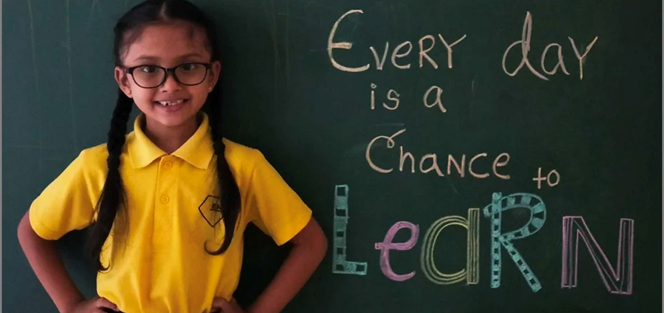 Every day
is a
Chance to
LeaRN